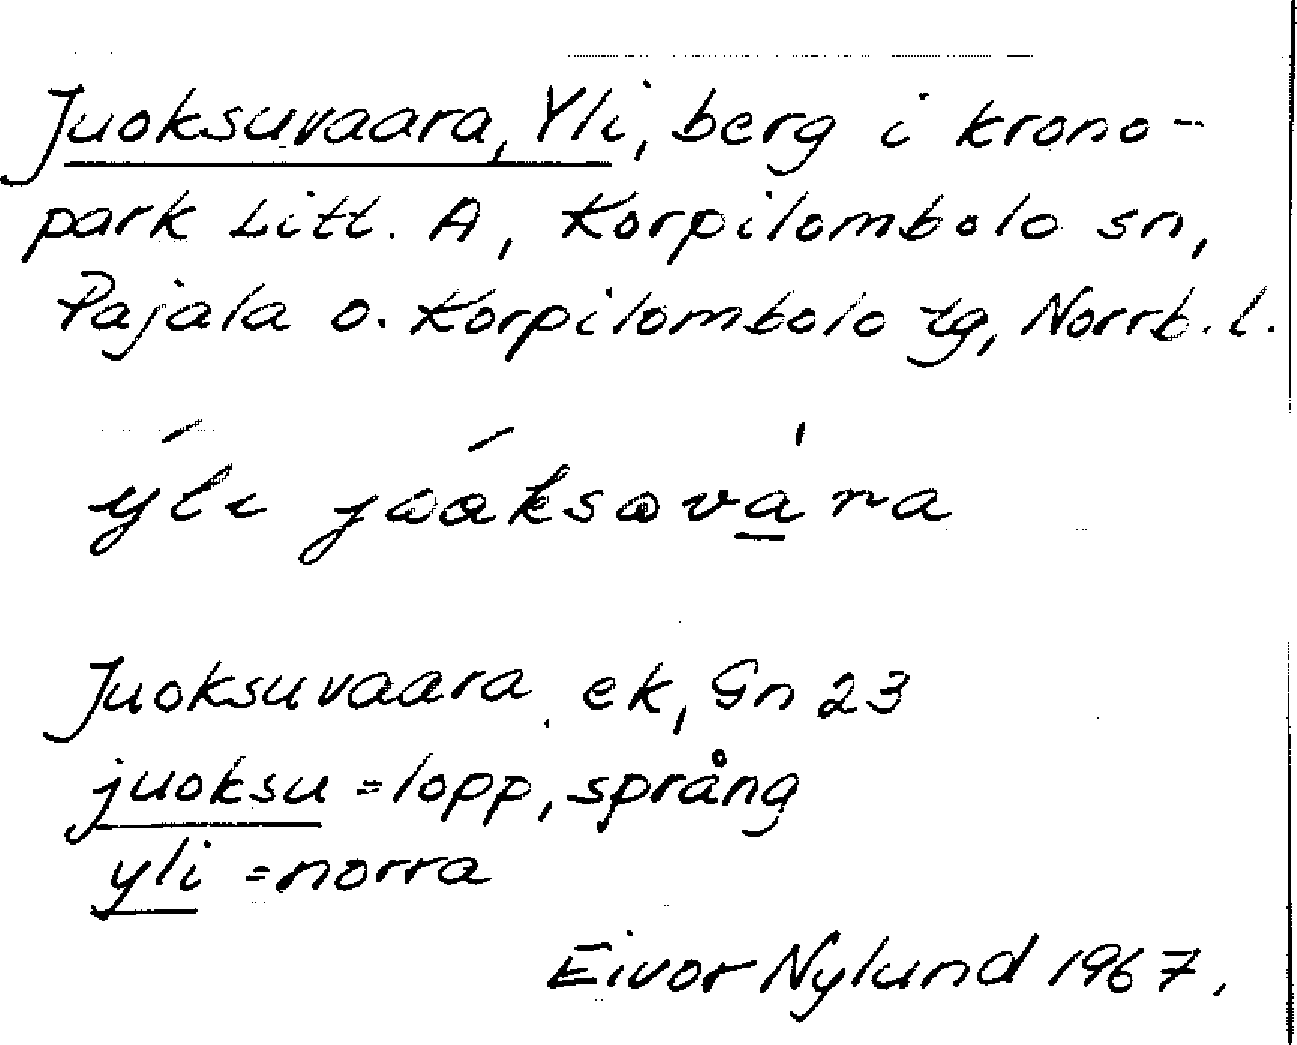 Juoksuvaara, Yli, berg i krono-
park Litt. A, Korpilombolo sn,
Pajala o. Korpilombolo tg, Norrb. l.
yli
Juoksuvaara ek, Gn 23
juoksu = lopp, språng
yli = norra
Eivor Nylund 1967.